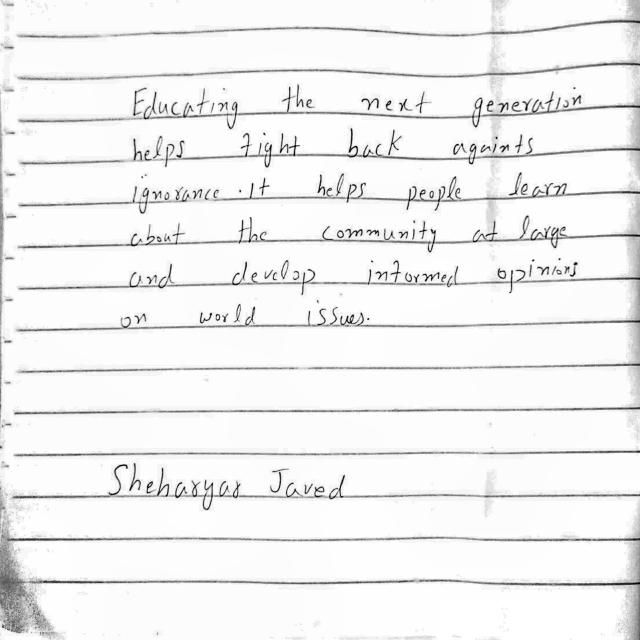 Educating the next generation
helps fight back againts
ignorance .It helps people learn
about the community at large
and develop informed opinions
on world issues.
Sheharyar Javed